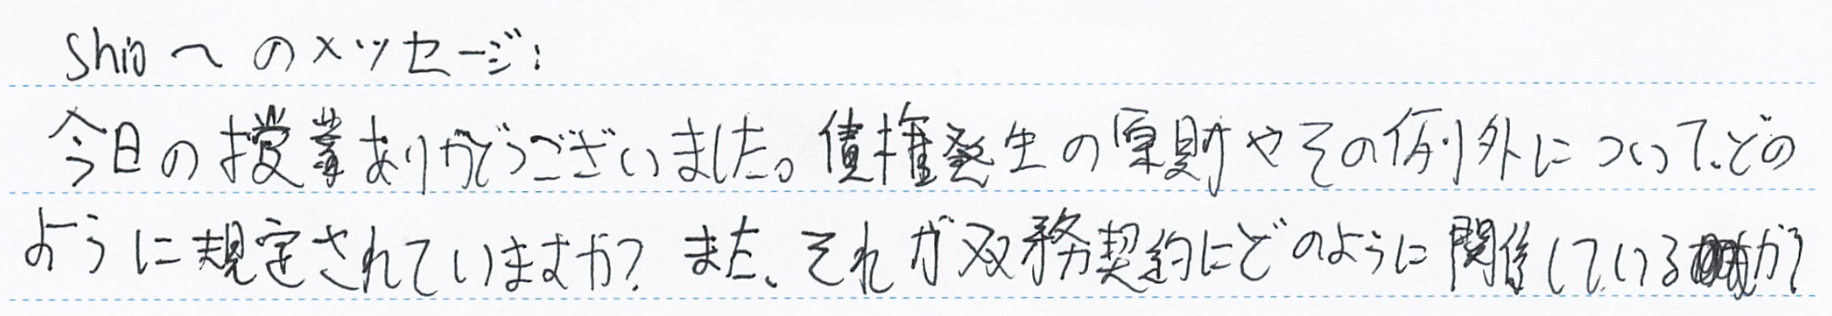 Shioへのメッセージ:
今日の授業ありがとうございました。債権発生の原則やその例外について、どの
ように規定されていますか? また、それが双務契約にどのように関係しているか?